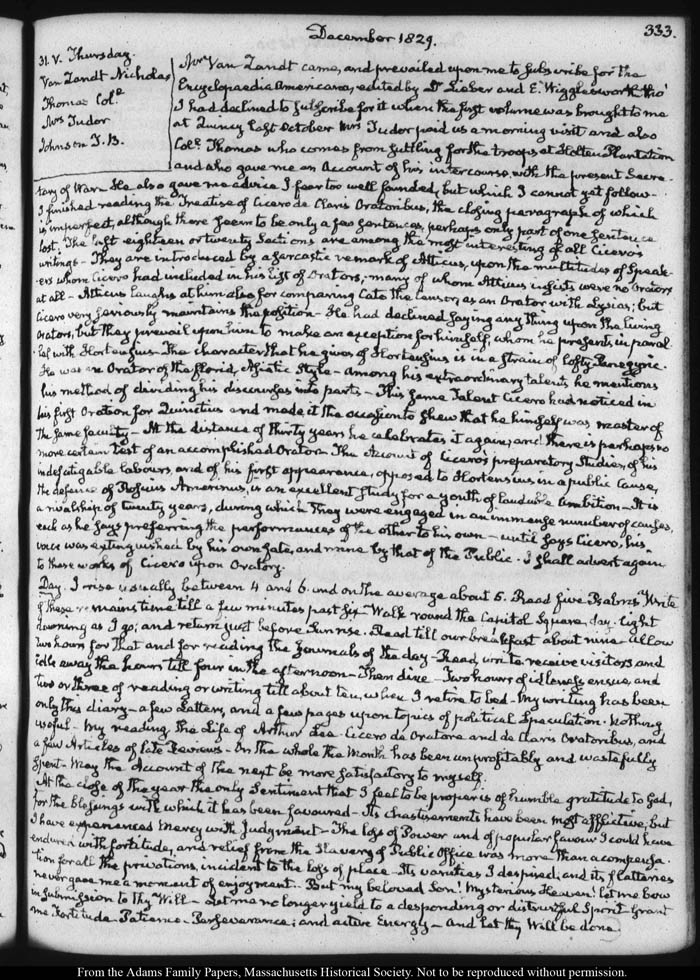 December 1829.
333.
31. V. Thursday.
Van Zandt Nicholas
Thomas Col.e
Mrs Tudor
Johnson J. B.
Mr Van Zandt came, and prevailed upon me to subscribe for the
Encyclopaedia Americana, edited by Dr Lieber and E. Wigglesworth, tho'
I had declined to subscribe for it when the first volume was brought to me
at Quincy last October Mrs Tudor paid us a morning visit and also
Col.e Thomas who comes from suttling for the troops at Holten Plantation
and who gave me an Account of his intercourse with the present Secre-
tary of War. He also gave me advice I fear too well founded, but which I cannot yet follow.
I finished reading the Treatise of Cicero de Claris Oratoribus, the closing paragraph of which
is imperfect, although there seem to be only a few sentences, perhaps only part of one sentence
lost. The last eighteen or twenty Sections are among the most interesting of all Cicero's
writings. They are introduced by a sarcastic remark of Atticus, upon the multitudes of Speak-
ers whom Cicero had included in his list of Orators, many of whom Atticus insists were no Orators
at all. Atticus laughs at him also for comparing Cato the Censor, as an Orator with Lysias; but
Cicero very seriously maintains the position. He had declined saying any thing upon the living
Orators, but they prevail upon him to make an exception for himself, whom he presents in paral-
lel with Hortensius. The character that he gives of Hortensius is in a strain of lofty Panegyric.
He was an Orator of the florid, Asiatic Style. Among his extraordinary talents, he mentions
his method of dividing his discourses into parts. This same Talent Cicero had noticed in
his first Oration for Quinctius and made it the occasion to shew that he himself was master of
the same faculty. At the distance of thirty years he celebrates it again; and there is perhaps no
more certain test of an accomplished Orator. The Account of Cicero's preparatory Studies, of his
indefatigable labours, and of his first appearance, opposed to Hortensius in a public Cause,
the defence of Roscius Amerinus, is an excellent study for a youth of laudable Ambition. It is
a rivalship of twenty years, during which they were engaged in an immense number of causes,
each as he says preferring the performances of the other to his own. until says Cicero, his
voice was extinguished by his own fate, and mine by that of the Public. I shall advert again
to these works of Cicero upon Oratory.
Day. I rise usually between 4 and 6. and on the average about 5. Read five Psalms. Write
if there remains time till a few minutes past six. Walk round the Capitol Square, day-light
dawning as I go; and return just before Sunrise. Read till our breakfast about nine allow
two hours for that and for reading the Journals of the day. Read, write receive visitors and
idle away the hours till four in the afternoon. Then dine. Two hours of idleness ensue, and
two or three of reading or writing till about ten, when I retire to bed. My writing has been
only this diary. a few Letters, and a few pages upon topics of political Speculation. Nothing
useful. My reading the Life of Arthur Lee. Cicero de Oratore and de Claris Oratoribus, and
a few Articles of late Reviews. On the whole the Month has been unprofitably and wastefully
spent. May the Account of the next be more satisfactory to myself.
At the close of the year the only Sentiment that I feel to be proper is of humble gratitude to God,
for the blessings with which it has been favoured. Its chastisements have been most afflictive, but
I have experienced Mercy with Judgment. The loss of Power and of popular favour I could have
endured with fortitude, and relief from the Slavery of Public Office was more than a compensa-
tion for all the privations, incident to the loss of place. Its vanities I despised, and its flatteries
never gave me a moment of enjoyment. But my beloved Son! Mysterious Heaven! let me bow
in submission to Thy Will. Let me no longer yield to a desponding or distrustful Spirit. Grant
me Fortitude Patience Perseverance; and active Energy. And let thy Will be done.
From the Adams Family Papers, Massachusetts Historical Society. Not to be reproduced without permission.